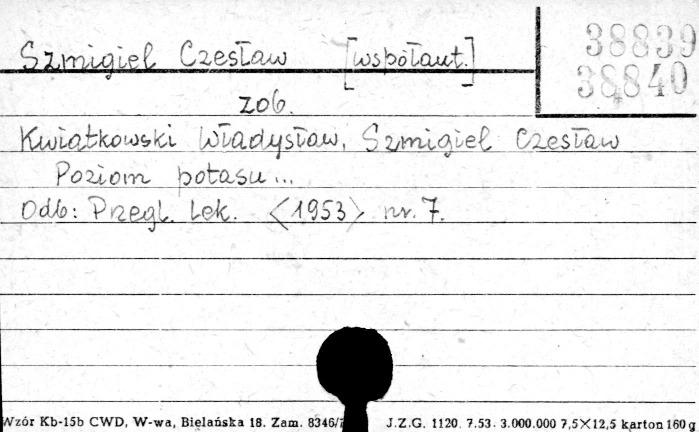 38839
38840
Szmigiel Czesław [współaut.]
zob.
Kwiatkowski Władysław, Szmigiel Czesław
Poziom potasu...
Odb: Przegl. Lek. <1953> nr. 7.
Wzór Kb-15b CWD, W-wa, Bielańska 18. Zam. 8346/ J.Z.G. 1120. 7.53. 3.000.000 7,5×12,5 karton 160 g